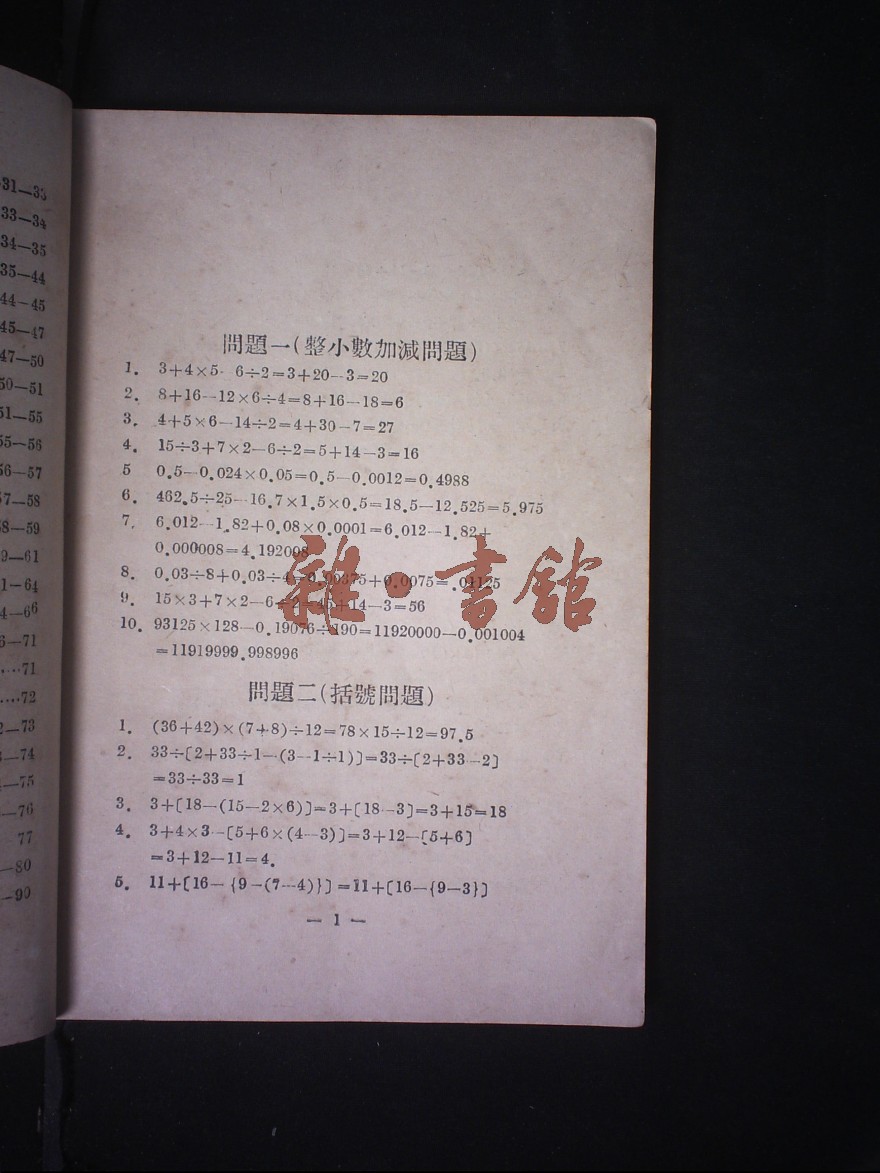 31—33
33—34
34—35
35—44
44—45
45—47
47—50
50—51
51—55
55—56
56—57
57—58
58—59
9—61
1—64
4—66
6—71
….71
….72
2—73
3—74
—75
—76
77
—80
—90
問題一(整小數加減問題)
1. 3+4×5—6÷2=3+20—3=20
2. 8+16—12×6÷4=8+16—18=6
3. 4+5×6—14÷2=4+30—7=27
4. 15÷3+7×2—6÷2=5+14—3=16
5 0.5—0.024×0.05=0.5—0.0012=0.4988
6. 462.5÷25—16.7×1.5×0.5=18.5—12.525=5.975
7. 6.012—1.82+0.08×0.0001=6.012—1.82+
0.000008=4.192008
8. 0.03÷8+0.03÷4=0.00375+0.0075=.01125
9. 15×3+7×2—6÷2=45+14—3=56
10. 93125×128—0.19076÷190=11920000—0.001004
=11919999.998996
雜·書館
問題二(括號問題)
1. (36+42)×(7+8)÷12=78×15÷12=97.5
2. 33÷[2+33÷1—(3—1÷1)]=33÷[2+33—2]
=33÷33=1
3. 3+[18—(15—2×6)]=3+[18—3]=3+15=18
4. 3+4×3—[5+6×(4—3)]=3+12—[5+6]
=3+12—11=4.
5. 11+[16—{9—(7—4)}]=11+[16—{9—3}]
— 1 —